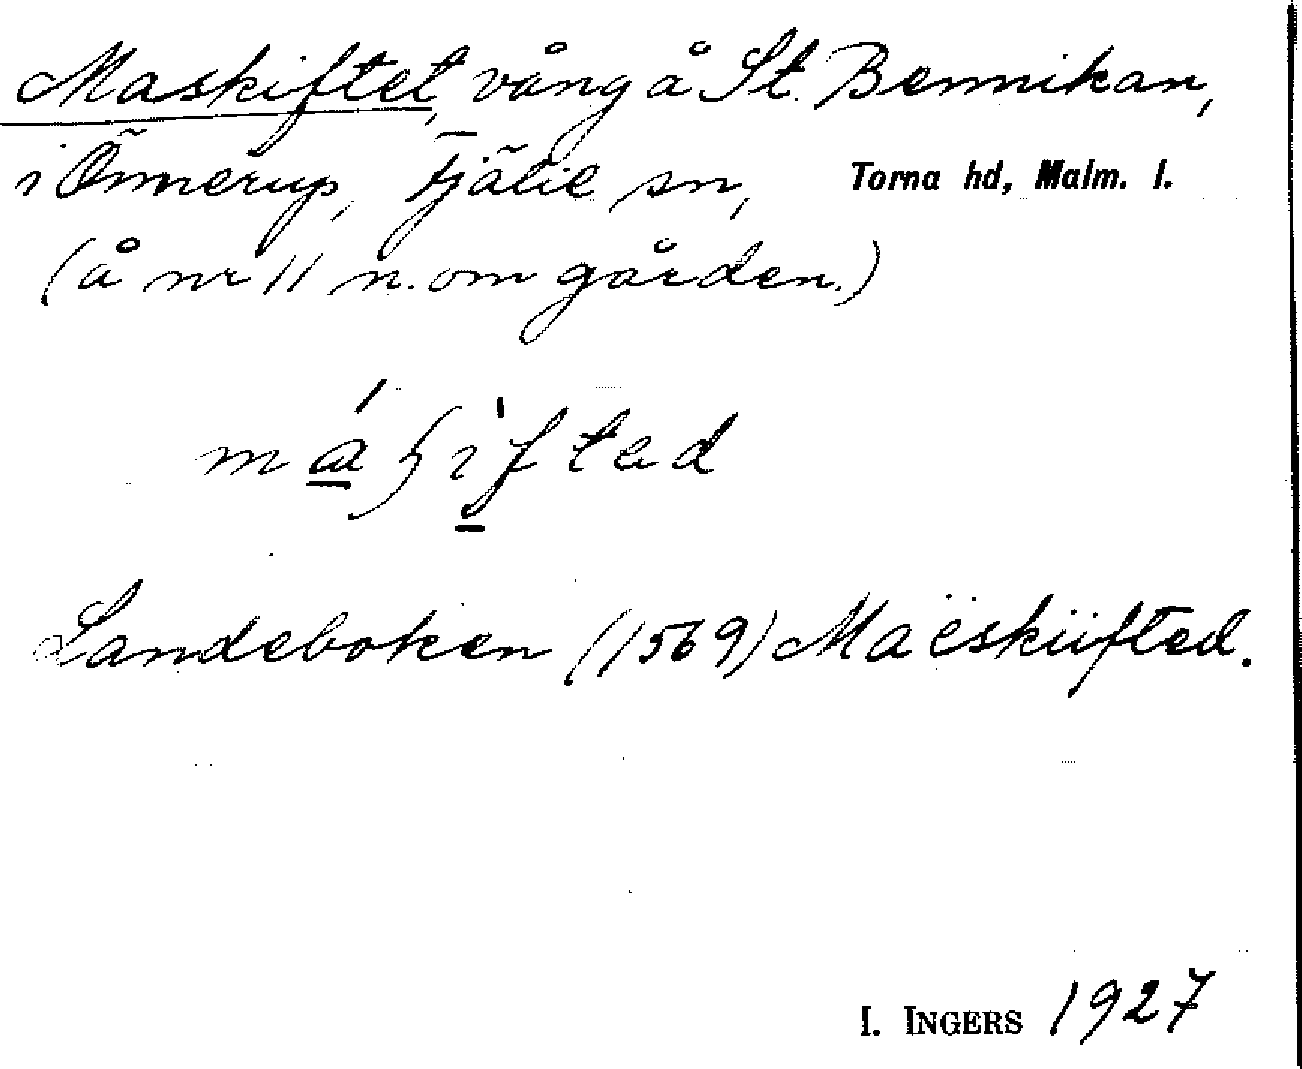 Maskiftet, vång å St. Bennikan,
i Önnerup, Fjälie sn, Torna hd, Malm. l.
(å nr 11 n. om gården.)
Landeboken (1569) Maëskiifted.
I. INGERS 1927